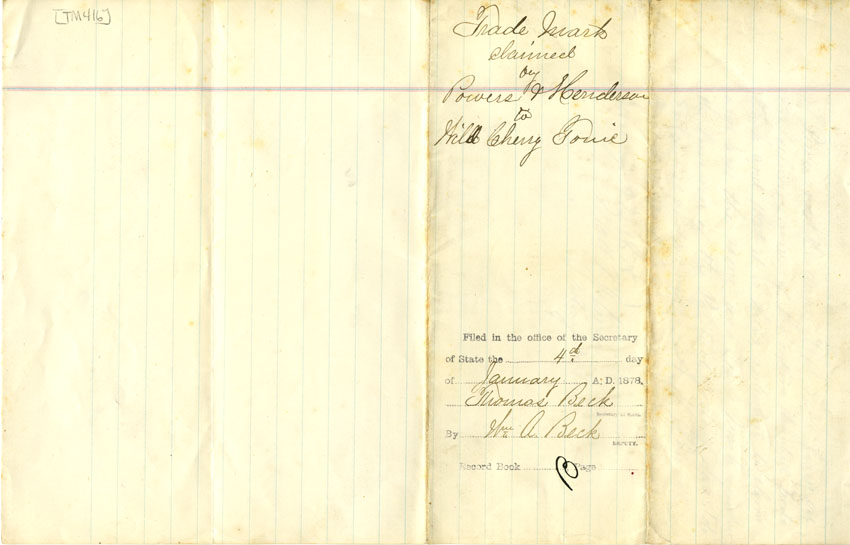 [TM416]
Trade Mark
claimed
by
Powers & Henderson
to
Wild Cherry Tonic
Filed in the office of the Secretary
of State the 4th day
of January A. D. 1878.
Thomas Beck
Secretary of State.
By Wm A Beck
DEPUTY.
Record Book Page